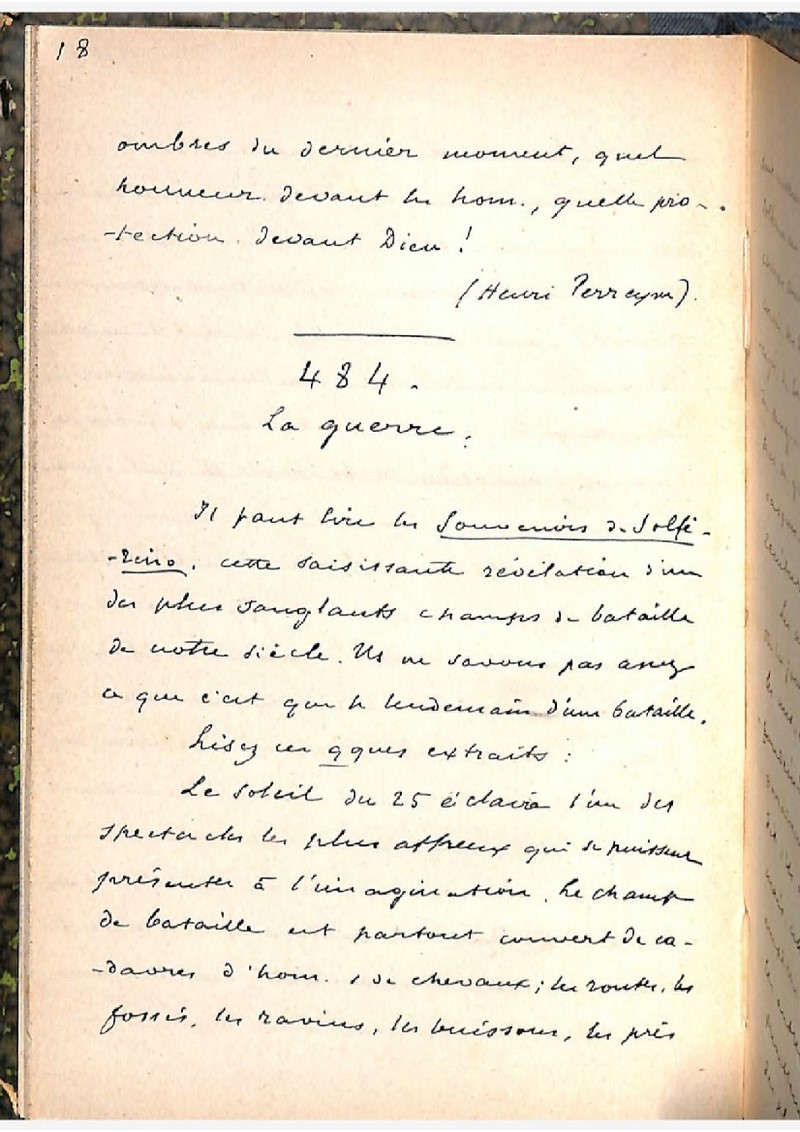 18
ombres du dernier moment, quel
honneur devant les hom., quelle pro-
-tection devant Dieu !
(Henri Perreyve).
484.
La guerre.
Il faut lire les Souvenirs de Solfé-
-rino, cette saisissante révélation d'un
des plus sanglants champs de bataille
de notre siècle. Ns ne savons pas assez
ce que c'est que le lendemain d'une bataille.
Lisez ces qques extraits :
Le soleil du 25 éclaira l'un des
spectacles les plus affreux qui se puissent
présenter à l'imagination. Le champ
de bataille est partout couvert de ca-
-davres d'hom. & de chevaux ; les routes, les
fossés, les ravins, les buissons, les prés